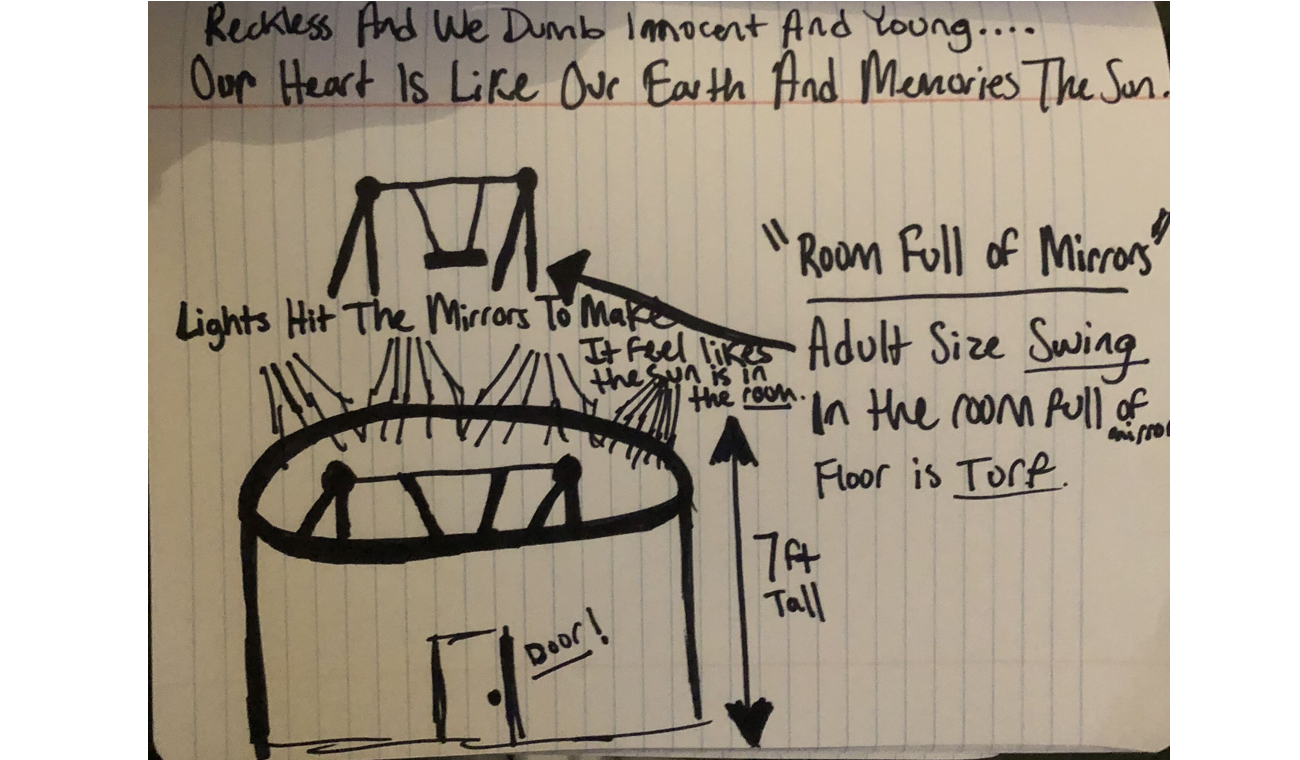 Reckless And We Dumb Innocent And Young....
Our Heart Is Like Our Earth And Memories The Sun.
"Room Full of Mirrors"
Lights Hit The Mirrors To Make
It feel likes
the sun is in
the room.
Adult Size Swing
In the room full of
mirro
Floor is Torf.
7ft
Tall
Door!